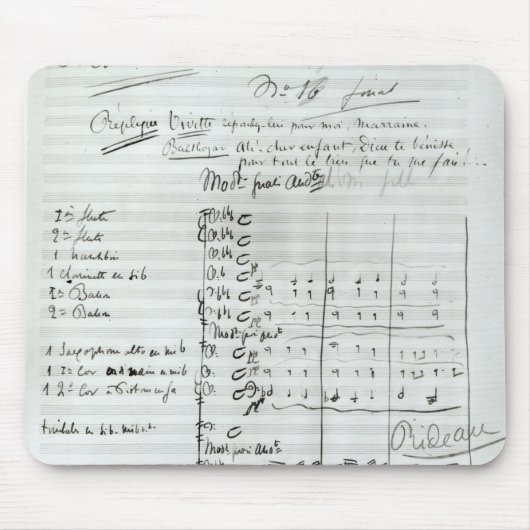 No 16 final
Réplique Vivette répondez-lui pour moi, marraine.
Balthazar Ah! cher enfant, Dieu te bénisse
pour tout le bien que tu me fais...
Modto quasi Andte
1re flute
2e flute
1 hautbois
1 clarinette en sib
1er Basson
2e Basson
Modto quasi Andte
1 Saxophone alto en mib
1 1er Cor à main en mib
1 2d Cor à Pistons en fa
timbales en sib-mib
Rideau
Modto quasi Andte